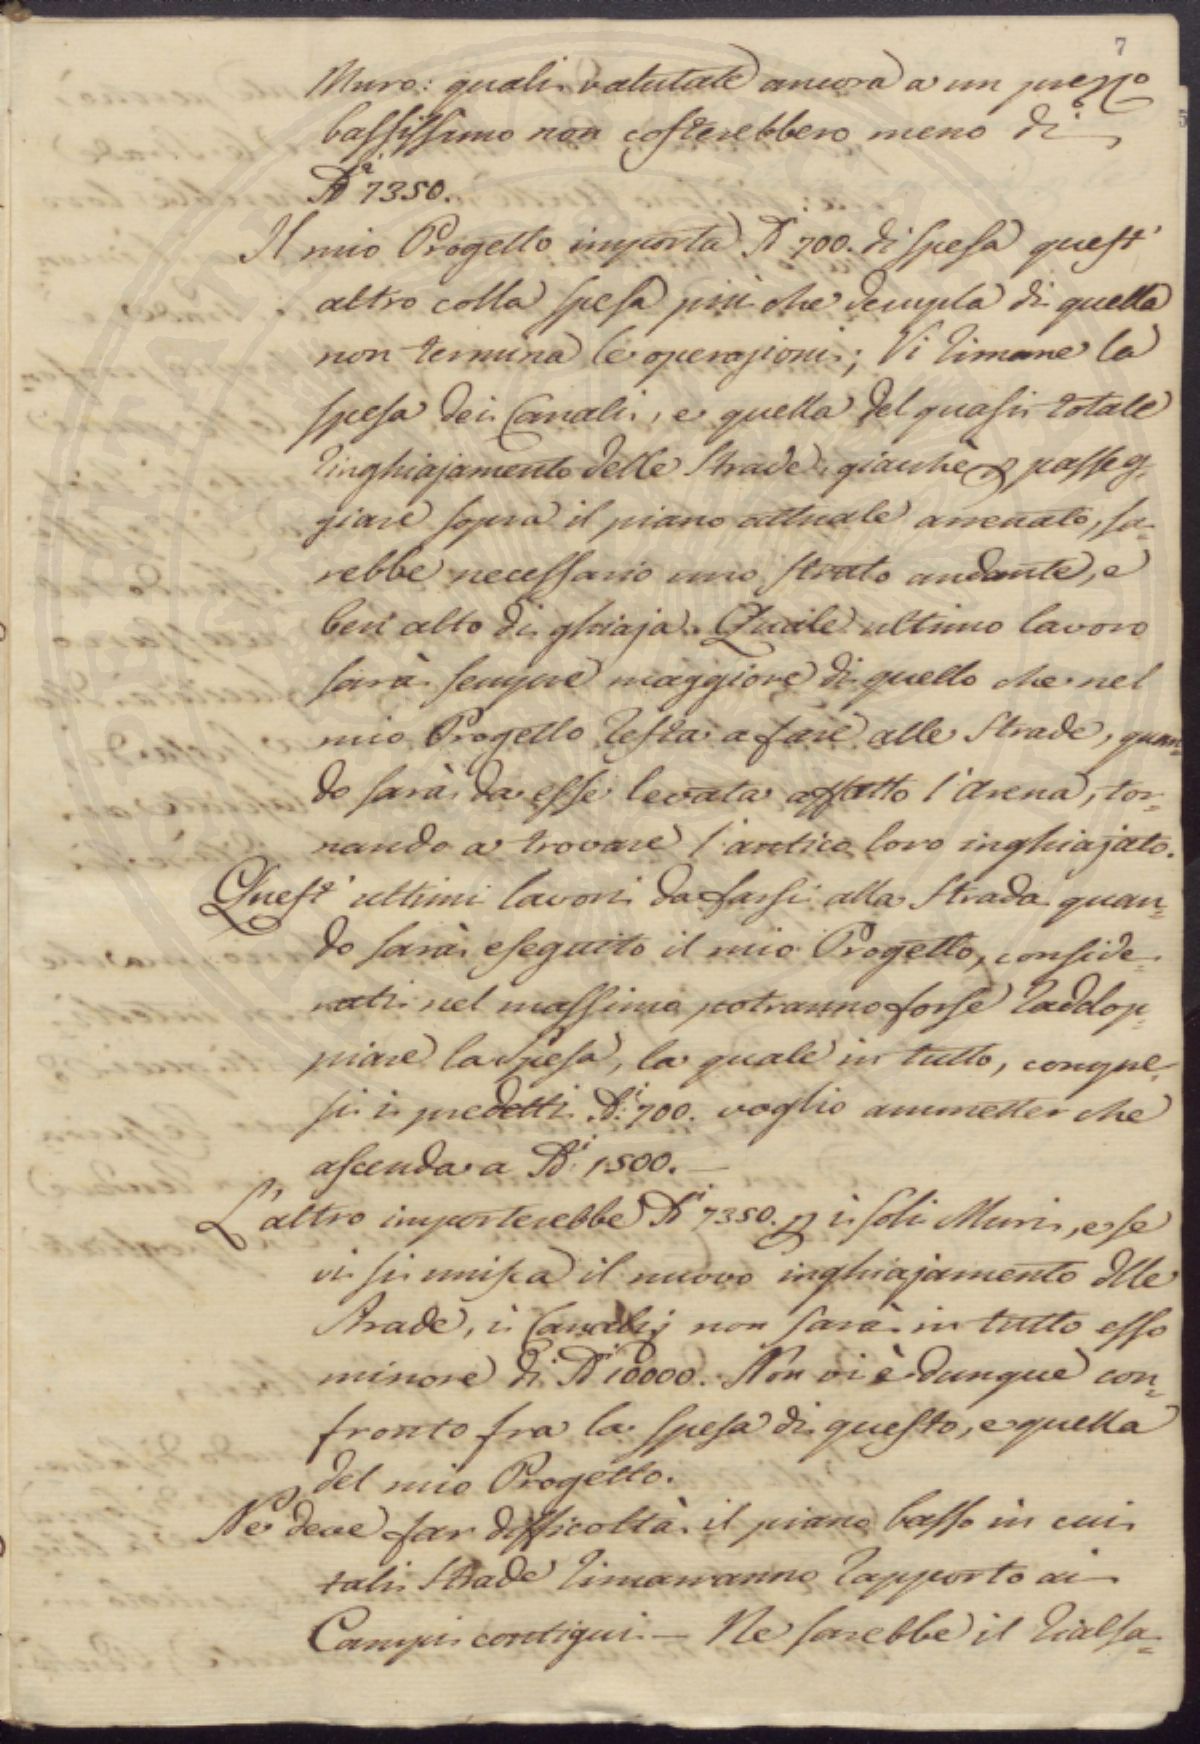 7
Muro: quali valutate ancora a un prezzo
bassissimo non costerebbero meno di
7350.
Il mio Progetto importa 700. di spesa quest'
altro colla spesa più che decupla di quella
non termina le operazioni; Vi rimane la
spesa dei Canali, e quella del quasi totale
ringhiajamento delle Strade, giacchè passeg=
giare sopra il piano attuale arrenato, sa=
rebbe necessario uno strato andante, e
ben alto di ghiaja. Quale ultimo lavoro
sarà sempre maggiore di quello che nel
mio Progetto resta a fare alle Strade, quan=
do sarà da esse levata affatto l'Arena, tor=
nando a trovare l'antico loro inghiajato.
Quest' ultimi lavori da farsi alla Strada quan=
do sarà eseguito il mio Progetto, conside=
rati nel massimo potranno forse raddop=
piare la spesa, la quale in tutto, compre=
si i predetti 700. voglio ammetter che
ascenda a 1500. —
L'altro importerebbe 7350. i soli Muri, e se
vi si unisca il nuovo inghiajamento delle
Strade, i Canali; non sarà in tutto esso
minore di 10000. Non vi è dunque con=
fronto fra la spesa di questo, e quella
del mio Progetto.
Ne deve far difficoltà il piano basso in cui
tali Strade rimarranno rapporto ai
Campi contigui — Ne sarebbe il rialsa=